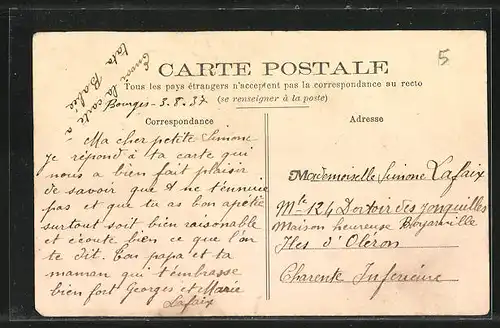 Envoi la carte a
tata Balie
5
CARTE POSTALE
Tous les pays étrangers n'acceptent pas la correspondance au recto
(se renseigner à la poste)
Bourges - 3.8.37
Correspondance
Ma cher petite Simone
je répond à ta carte qui
nous a bien fait plaisir
de savoir que tu ne t'ennuie
pas et que tu as bon apetit
surtout soit bien raisonable
et écoute bien ce que l'on
te dit. Ton papa et ta
maman qui t'embrasse
bien fort Georges et Marie
Lafaix
Adresse
Mademoiselle Simone Lafaix
Mle 124 Dortoir des jonquilles
Maison heureuse Boyarville
Iles d'Oléron
Charente Inférieure